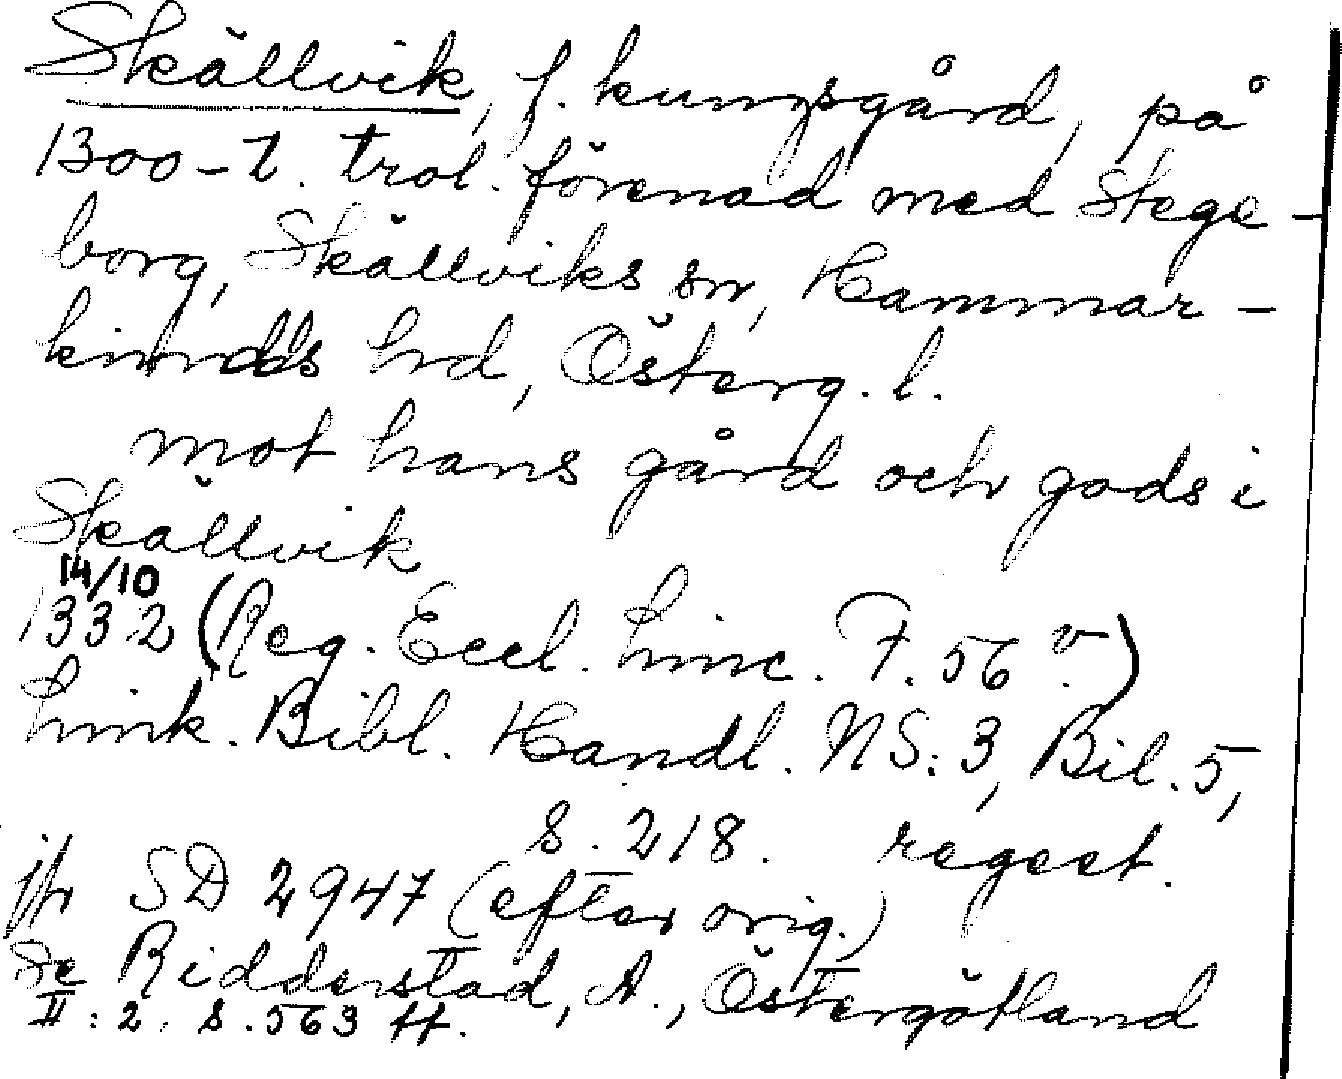 Skällvik, f. kungsgård, på
1300-t. trol. förenad med Stege-
borg, Skällviks sn, Hammar-
kinds hd, Österg. l.
mot hans gård och gods i
Skällvik
14/10
1332 (Reg. Eccl. Linc. F. 56 v.)
Link. Bibl. Handl. NS: 3, Bil. 5,
s. 218. regest.
jfr SD 2947 (efter orig.)
Se Ridderstad, A., Östergötland
II: 2, s. 563 ff.